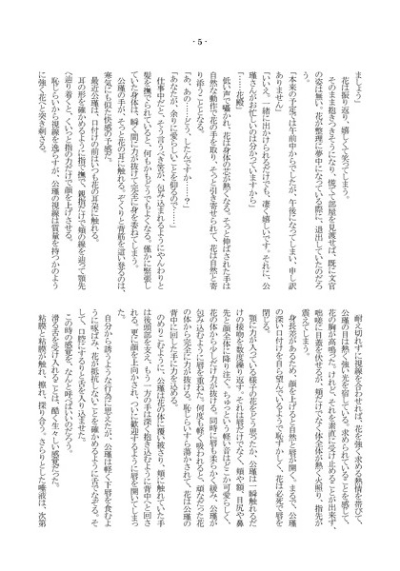 - 5 -
ましょう」
　花は振り返り、嬉しくて笑ってしまう。
　そのまま抱きつきそうになり、慌てて部屋を見渡せば、既に文官
の姿は無い。花が整理に夢中になっている間に、退出していたのだろ
う。
「本来の予定では午前中からでしたが、午後になってしまい、申し訳
ありません」
「いいえ。一緒に出かけられるだけでも、凄く嬉しいです。それに、公
瑾さんがお忙しいのは分かっていますから」
「……花殿」
　低い声で囁かれ、花は身体の芯が熱くなる。そっと伸ばされた手は
自然な動作で花の手を取り、そっと引き寄せられて、花は自然と寄
り添うこととなる。
「あ、あの…どう、したんですか……？」
「あなたが、余りに愛らしいことを仰るので……」
　仕事中だと、そう言うべき筈が、包み込まれるようにやんわりと
髪を撫でられていると、何もかもどうでもよくなる。僅かに緊張し
ていた身体は、瞬く間に力が抜けて完全に身を委ねてしまう。
　公瑾の手が、そっと花の耳に触れる。ぞくりと背筋を這い登るのは、
寒気にも似た快感の予感だ。
　最近公瑾は、口付けの前はいつも花の耳朶に触れる。
　耳の形を確かめるように指で撫で、親指だけで頬の線を辿って顎先
へ辿り着くと、くいっと指の力だけで顔を上げさせる。
　恥じらいから視線を逸らすが、公瑾の視線は質量を持つかのよう
に強く花へと突き刺さる。
　耐え切れずに視線を合わせれば、花を強く求める熱情を帯びて、
公瑾の目は熱く強い光を宿している。求められていることを感じて、
花の胸が高鳴った。けれど、それを素直に受け止めることが出来ず、
咄嗟に目蓋を伏せるが、頬だけでなく体全体が熱く火照り、指先が
震えてしまう。
　身長差があるため、顔を上げると自然と唇が開く。まるで、公瑾
の深い口付けを自ら望んでいるようで恥ずかしく、花は必死で唇を
閉じる。
　顎に力が入っている様子の花をどう思ったか、公瑾は一瞬触れるだ
けの接吻を数度繰り返す。それは唇だけでなく、頬や額、目尻や鼻
先と顔全体に降り注ぐ。ちゅっという軽い音はどこか可愛らしく、
花の体から少しだけ力が抜ける。同時に唇も柔らかく緩み、公瑾が
包み込むように唇を重ねた。何度も軽く吸われると、頑なだった花
の体から完全に力が抜ける。恥じらいすら蕩かされて、花は公瑾の
背中に回した手に力を込める。
　のめりこむように、公瑾は花の体に覆い被さり、頬に触れていた手
は後頭部を支え、もう一方の手は深く抱き込むように背中へと回さ
れる。更に顔を上向かされ、ついに歓迎するように唇を開いてしまう。
　自分から誘うような行為に思えたが、公瑾は軽く下唇を食むよ
うに啄ばみ、花が抵抗しないことを確かめるように舌でなぞる。そ
して、口腔にするりと舌を入り込ませた。
　この時の感覚を、なんと呼べばいいのだろう。
　滑る舌を受け入れることは、酷く生々しい感覚だった。
　粘膜と粘膜が触れ、擦れ、探り合う。さらりとした唾液は、次第